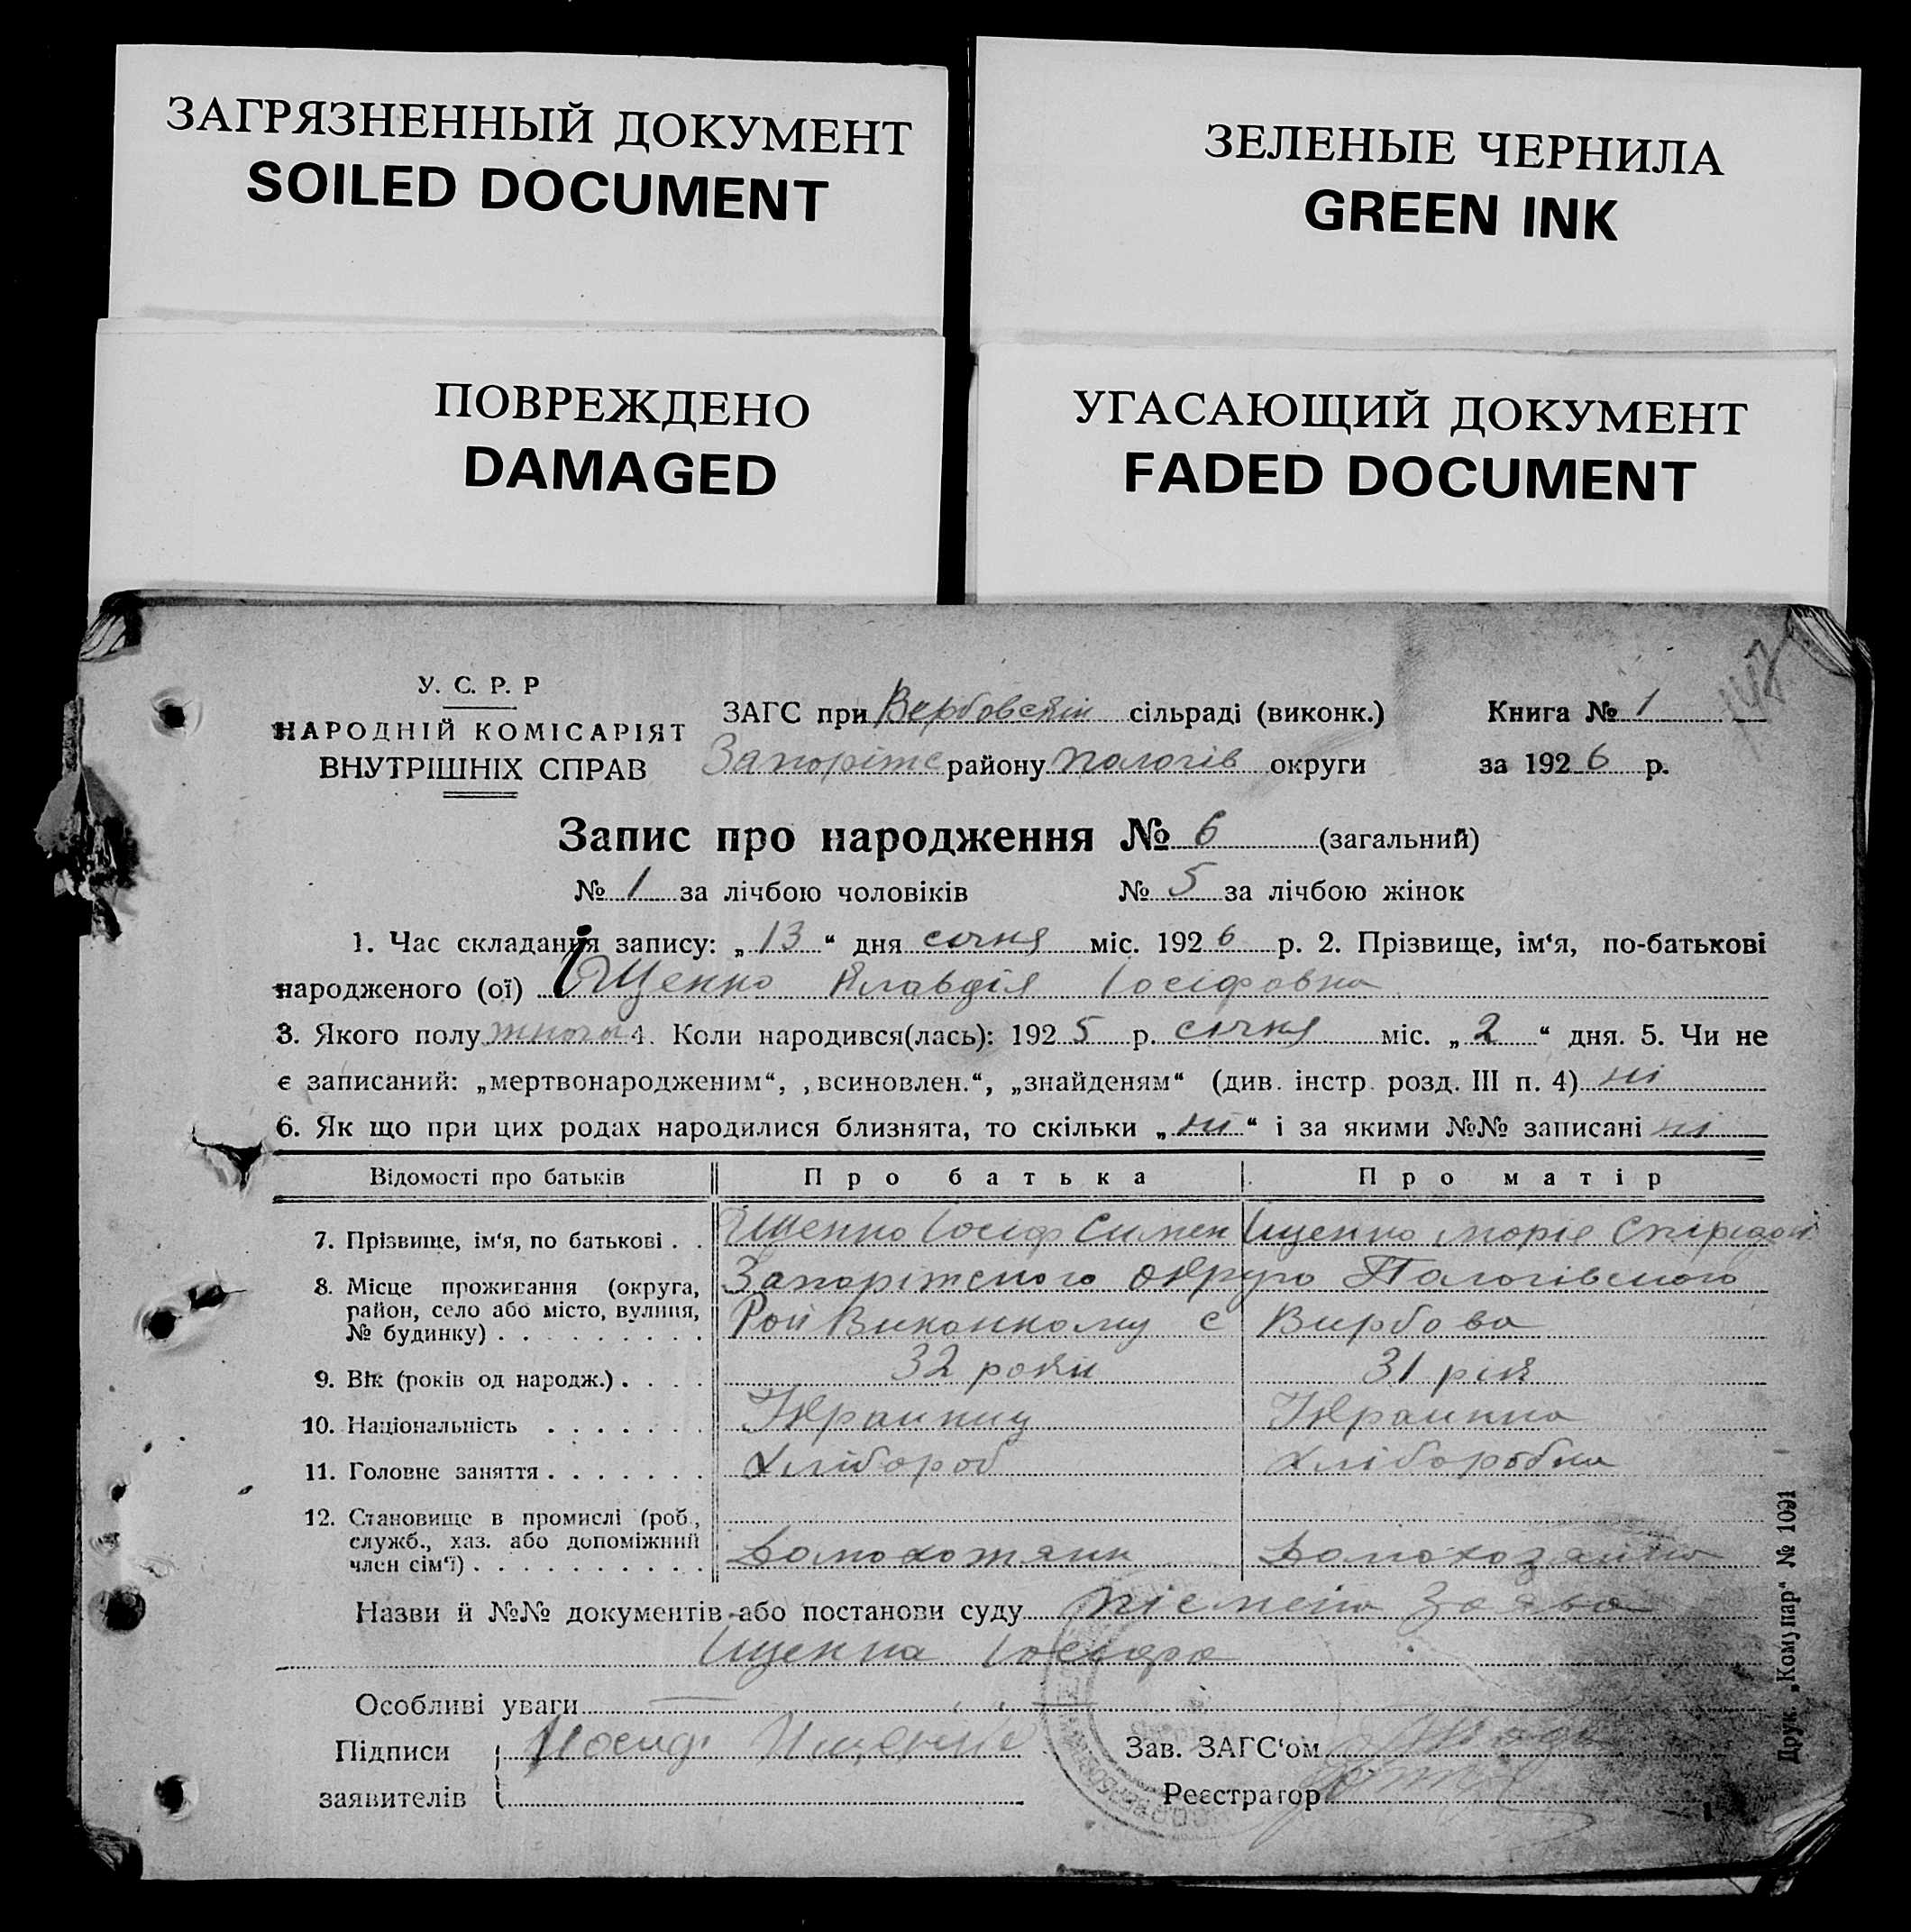 ЗАГРЯЗНЕННЫЙ ДОКУМЕНТ
SOILED DOCUMENT
ЗЕЛЕНЫЕ ЧЕРНИЛА
GREEN INK
ПОВРЕЖДЕНО
DAMAGED
УГАСАЮЩИЙ ДОКУМЕНТ
FADED DOCUMENT
У. С. Р. Р
НАРОДНІЙ КОМІСАРІЯТ
ВНУТРІШНІХ СПРАВ
ЗАГС при Вербовській сільраді (виконк.) Книга № 1
Запоріже району Пологів округи за 1926 р.
Запис про народження № 6 (загальний)
№ 1 за лічбою чоловіків № 5 за лічбою жінок
1. Час складання запису: „13“ дня січня міс. 1926 р. 2. Прізвище, ім‘я, по-батькові
народженого (ої) Іщенко Клавдія Іосіфовна
3. Якого полу 4. Коли народився(лась): 1925 р. січня міс. „2“ дня. 5. Чи не
є записаний: „мертвонародженим“, „всиновлен.“, „знайденям“ (див. інстр. розд. III п. 4) ні
6. Як що при цих родах народилися близнята, то скільки „ні“ і за якими №№ записані ні
Відомості про батьків Про батька Про матір
7. Прізвище, ім‘я, по батькові . . Іщенко Іосіф Симен Іщенко Марія Спірідон
8. Місце прожигання (округа, Запоріжського округо Пологівського
район, село або місто, вулиця, Рой Виконкому с Вирбова
№ будинку) . . . . . . . . .
9. Вік (років од народж.) . . . . 32 роки 31 рік
10. Національність . . . . . . . Украинец Украинка
11. Головне заняття . . . . . . . Хлібороб Хлібородка
12. Становище в промислі (роб.,
служб., хаз. або допоміжний
член сім‘ї) . . . . . . . . . . Домохозяїн Домохозайка
Назви й №№ документів або постанови суду пісмена Заява
Іщенка Іосіфа
Особливі уваги
Підписи Иосиф Ищенко Зав. ЗАГС‘ом
заявителів Реєстратор
Друк. „Комунар“ № 1091